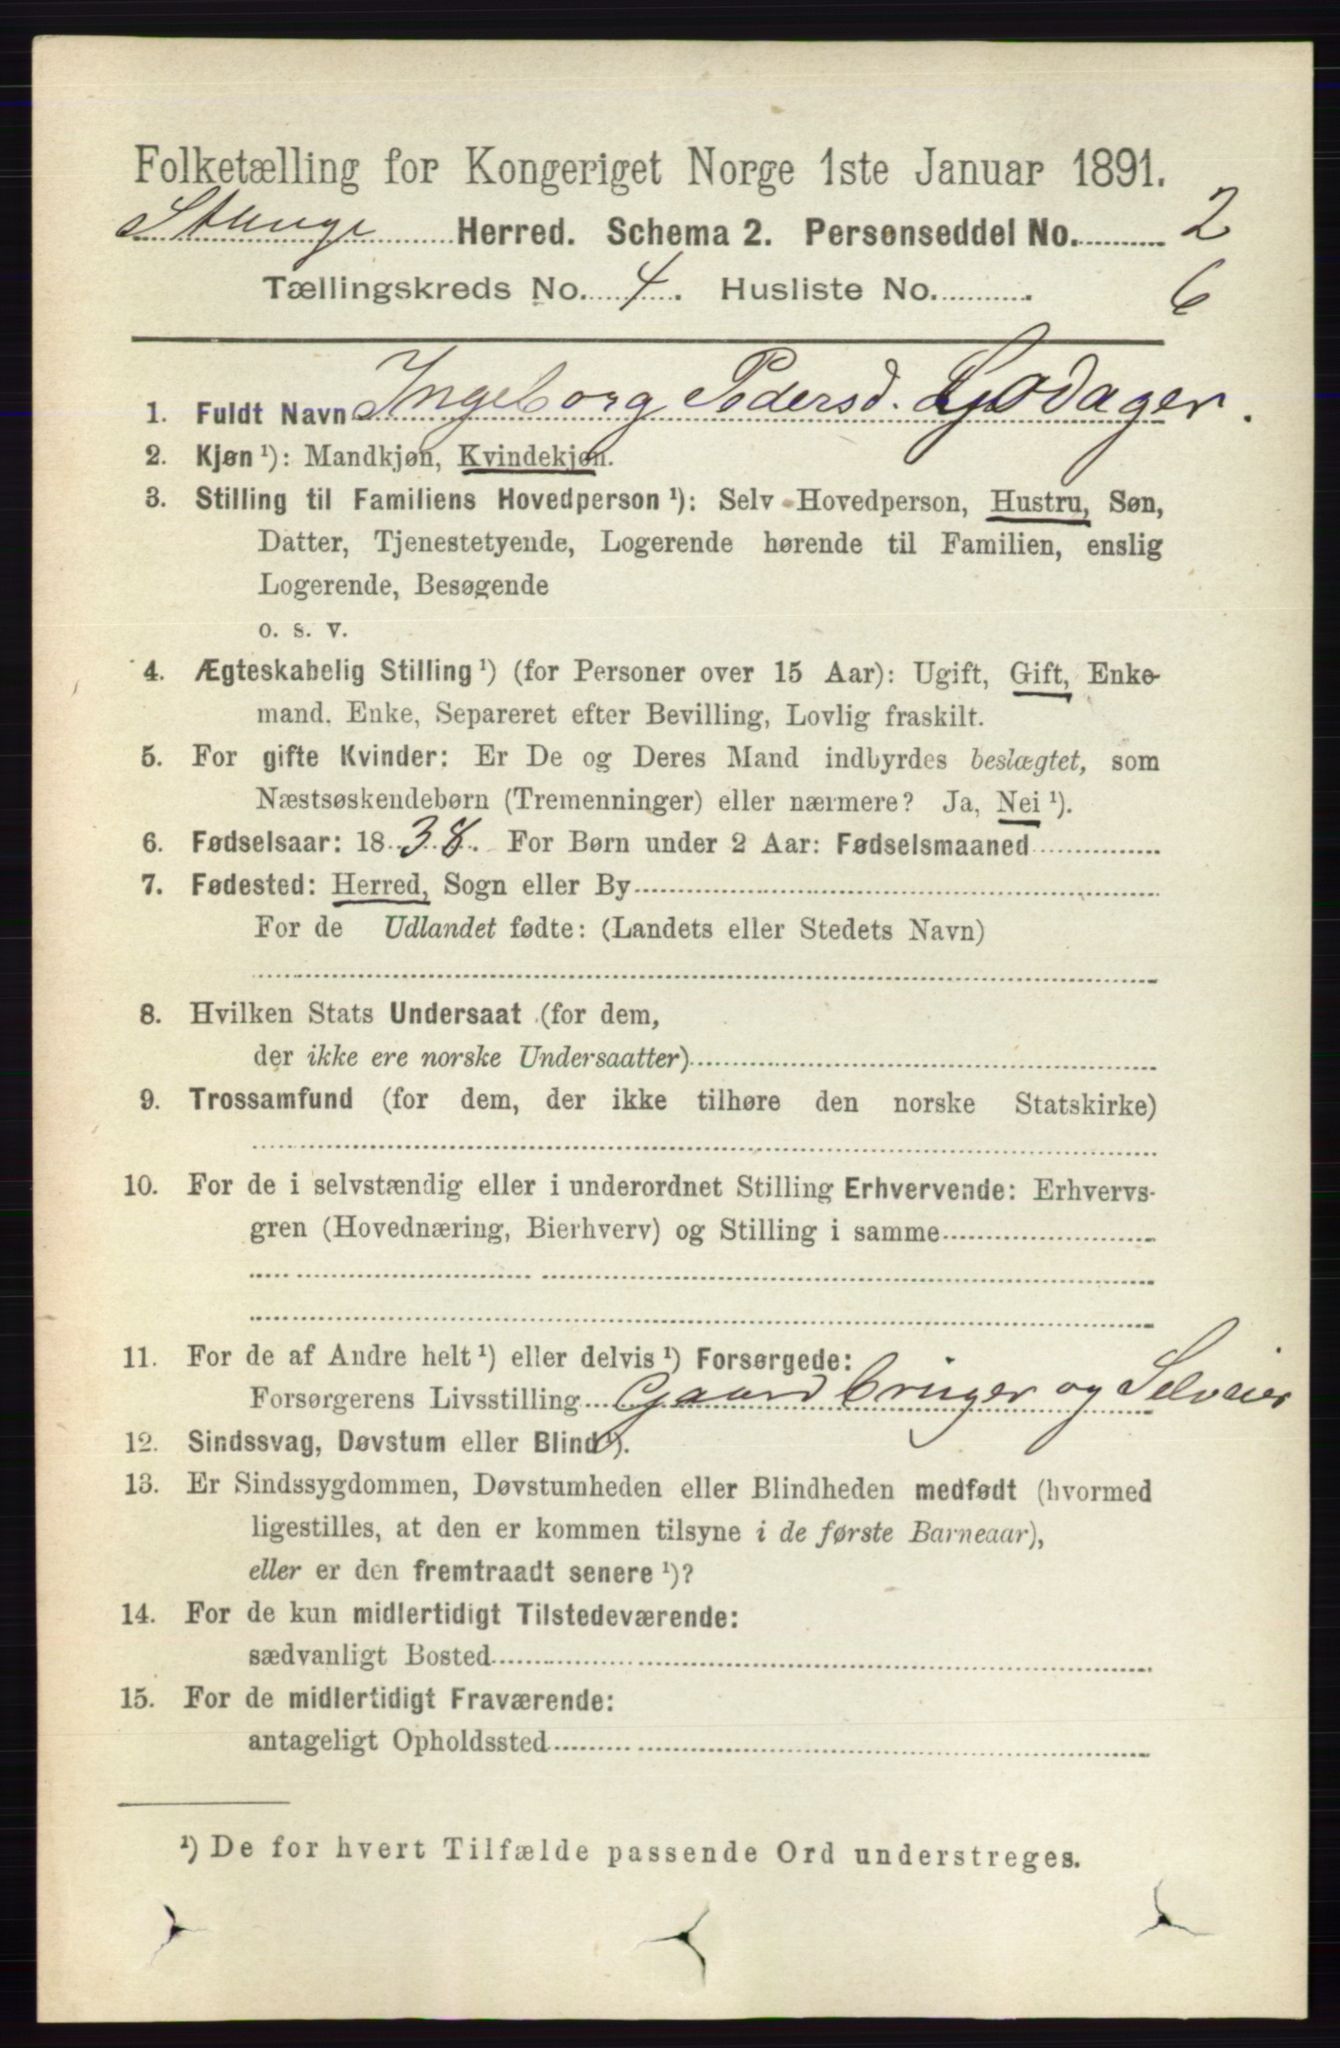 Folketælling for Kongeriget Norge 1ste Januar 1891.
Stange Herred. Schema 2. Personseddel No. 2
Tællingskreds No. 4. Husliste No. 6
1. Fuldt Navn Ingeborg Pedersd. Godager.
2. Kjøn ¹): Mandkjøn, Kvindekjøn.
3. Stilling til Familiens Hovedperson ¹): Selv Hovedperson, Hustru, Søn,
Datter, Tjenestetyende, Logerende hørende til Familien, enslig
Logerende, Besøgende
o. s. v.
4. Ægteskabelig Stilling ¹) (for Personer over 15 Aar): Ugift, Gift, Enke-
mand, Enke, Separeret efter Bevilling, Lovlig fraskilt.
5. For gifte Kvinder: Er De og Deres Mand indbyrdes beslægtet, som
Næstsøskendebørn (Tremenninger) eller nærmere? Ja, Nei ¹).
6. Fødselsaar: 1838. For Børn under 2 Aar: Fødselsmaaned
7. Fødested: Herred, Sogn eller By
For de Udlandet fødte: (Landets eller Stedets Navn)
8. Hvilken Stats Undersaat (for dem,
der ikke ere norske Undersaatter)
9. Trossamfund (for dem, der ikke tilhøre den norske Statskirke)
10. For de i selvstændig eller i underordnet Stilling Erhvervende: Erhvervs-
gren (Hovednæring, Bierhverv) og Stilling i samme
11. For de af Andre helt ¹) eller delvis ¹) Forsørgede:
Forsørgerens Livsstilling Gaardbruger og Selveier
12. Sindssvag, Døvstum eller Blind ¹).
13. Er Sindssygdommen, Døvstumheden eller Blindheden medfødt (hvormed
ligestilles, at den er kommen tilsyne i de første Barneaar),
eller er den fremtraadt senere ¹)?
14. For de kun midlertidigt Tilstedeværende:
sædvanligt Bosted
15. For de midlertidigt Fraværende:
antageligt Opholdssted
¹) De for hvert Tilfælde passende Ord understreges.